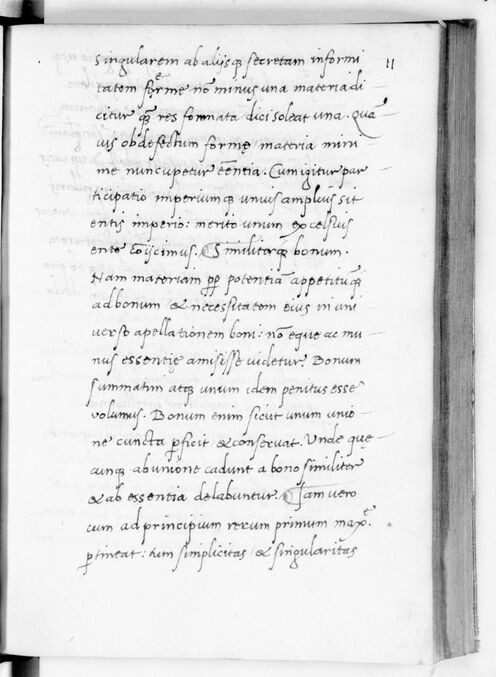 Singularem ab alijsq; secretam informi
11
tatem formę: nõ minus una materia di
citur q̃; res formata dici soleat una. Qua
uis ob defectum formę/ materia mini
me nuncupetur eẽntia. Cum igitur par
ticipatio imperiumq; unius amplius sit
entis imperio: merito unum excelsius
ente coijcimus. Similiterq; bonum.
Nam materiam ꝓp potentiã appetitũq;
ad bonum & necessitatem eius in uni
uerso apellationem boni: nõ eque ac mu
nus essentię amisisse uidetur. Bonum
summatim atq; unum idem penitus esse
volumus. Bonum enim sicut unum unio
ne cuncta ꝑficit/ & conseruat. Unde quę
cunq; ab unione cadunt a bono similiter
& ab essentia delabuntur. Jam uero
cum ad principium rerum primum maxẽ
ꝑtineat: tum simplicitas/ & singularitas